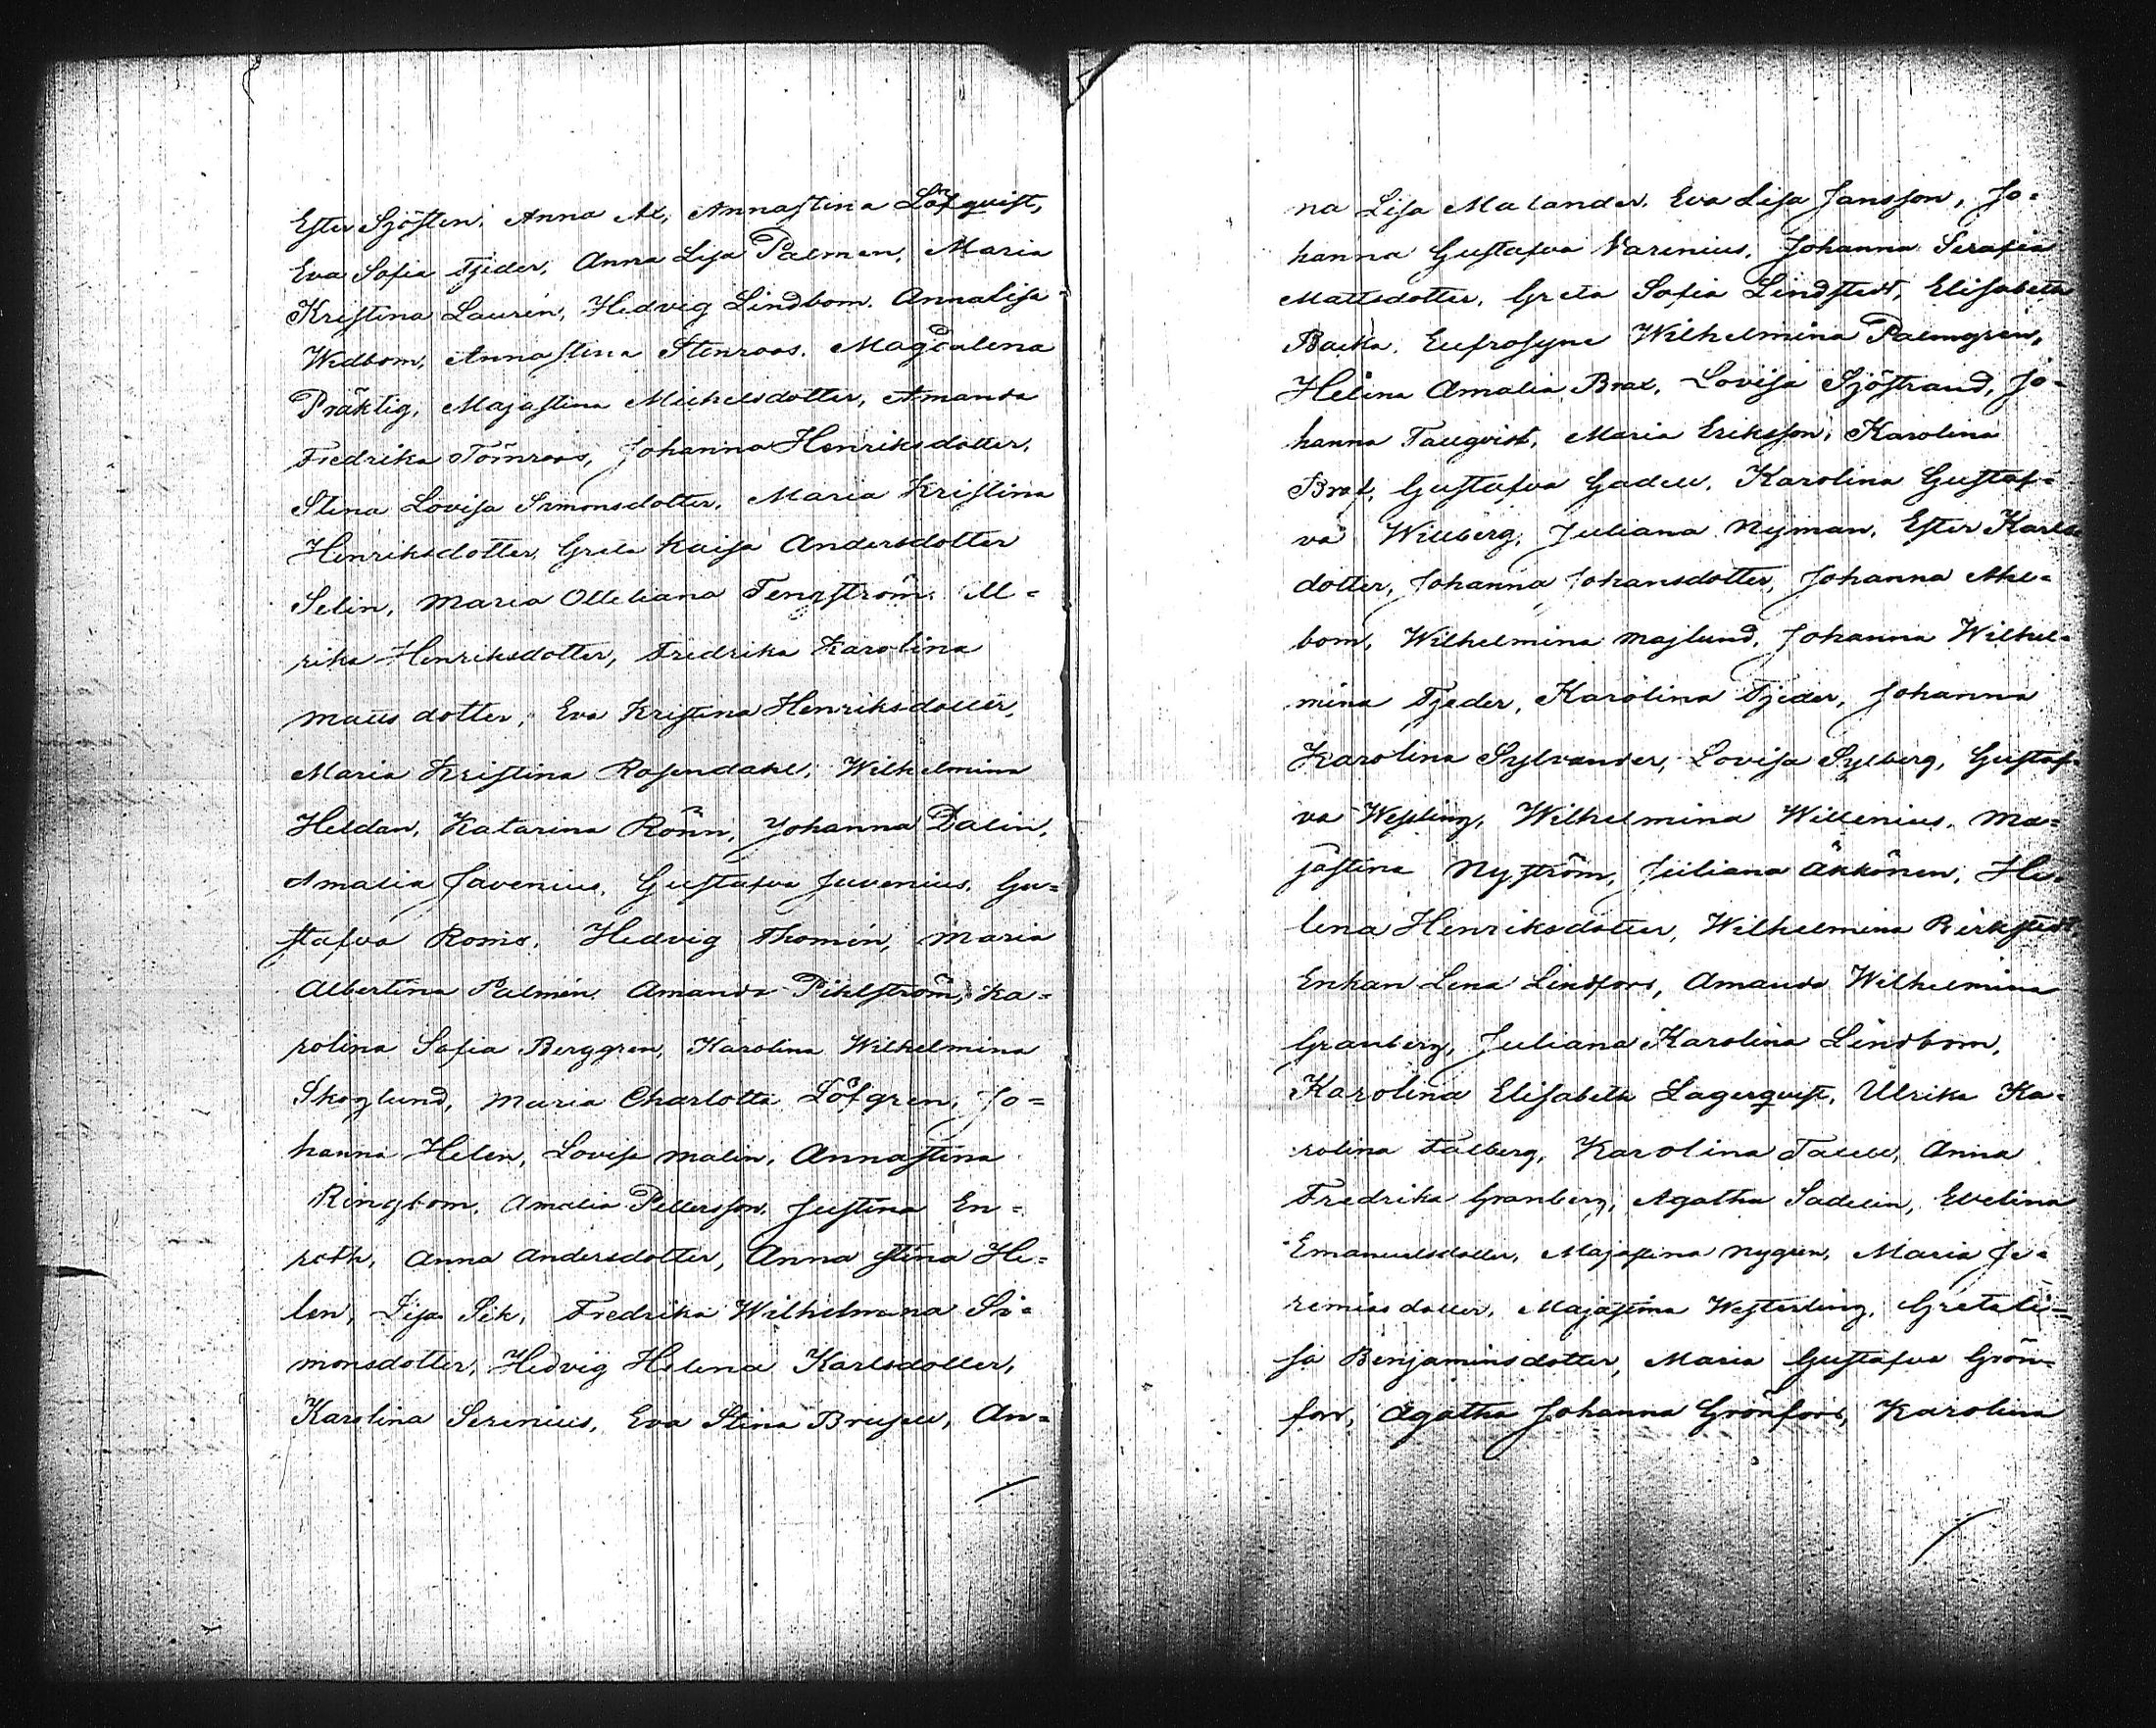 Ester Sjösten, Anna Al, Annastina Löfqvist,
Eva Sofia Tjeder, Anna Lisa Palmen, Maria
Kristina Laurén, Hedvig Lindbom, Annalisa
Wedbom, Annastina Stenroos, Magdalena
Präktig, Majastina Michelsdotter, Amanda
Fredrika Törnroos, Johanna Henriksdotter,
Stina Lovisa Simonsdotter, Maria Kristina
Henriksdotter, Greta Kaisa Andersdotter
Selin, Maria Otteliana Tengström, Ul=
rika Henriksdotter, Fredrika Karolina
Mattsdotter, Eva Kristina Henriksdotter,
Maria Kristina Rosendahl, Wilhelmina
Heldan, Katarina Rönn, Johanna Dalin,
Amalia Javenius, Gustafva Juvenius, Gu=
stafva Roms, Hedvig Thomén, Maria
Albertina Palmén, Amanda Pihlström, Ka=
rolina Sofia Berggren, Karolina Wilhelmina
Skoglund, Maria Charlotta Löfgren, Jo=
hanna Helen, Lovisa Malin, Annastina
Ringbom, Amalia Pettersson, Justina En=
roth, Anna Andersdotter, Anna Stina He=
len, Lisa Sik, Fredrika Wilhelmina Si=
monsdotter, Hedvig Helena Karlsdotter,
Karolina Serenius, Eva Stina Brusell, An=
na Lisa Malander, Eva Lisa Jansson, Jo=
hanna Gustafva Varenius, Johanna Serafia
Mattsdotter, Greta Sofia Lindstedt, Elisabeth
Backa, Eufrosyne Wilhelmina Palmgren,
Helena Amalia Brax, Lovisa Sjöstrand, Jo=
hanna Tallqvist, Maria Eriksson, Karolina
Brax, Gustafva Gadell, Karolina Gustaf=
va Willberg, Juliana Nyman, Ester Karls
dotter, Johanna Johansdotter, Johanna Ahl=
bom, Wilhelmina Majlund, Johanna Wilhel=
mina Tjeder, Karolina Tjeder, Johanna
Karolina Sylvander, Lovisa Sylberg, Gustaf=
va Wessling, Wilhelmina Willenius, Ma=
jastina Nyström, Juliana Äkkönen, He=
lena Henriksdotter, Wilhelmina Birkstedt,
Enkan Lena Lindfors, Amanda Wilhelmina
Granberg, Juliana Karolina Lindbom,
Karolina Elisabeth Lagerqvist, Ulrika Ka=
rolina Talberg, Karolina Talell, Anna
Fredrika Granberg, Agatha Sadelin, Evelina
Emanuelsdotter, Majastina Nygren, Maria Je=
remiasdotter, Majastina Westerling, Greta Li=
sa Benjaminsdotter, Maria Gustafva Grön=
fors, Agatha Johanna Grönfors, Karolina